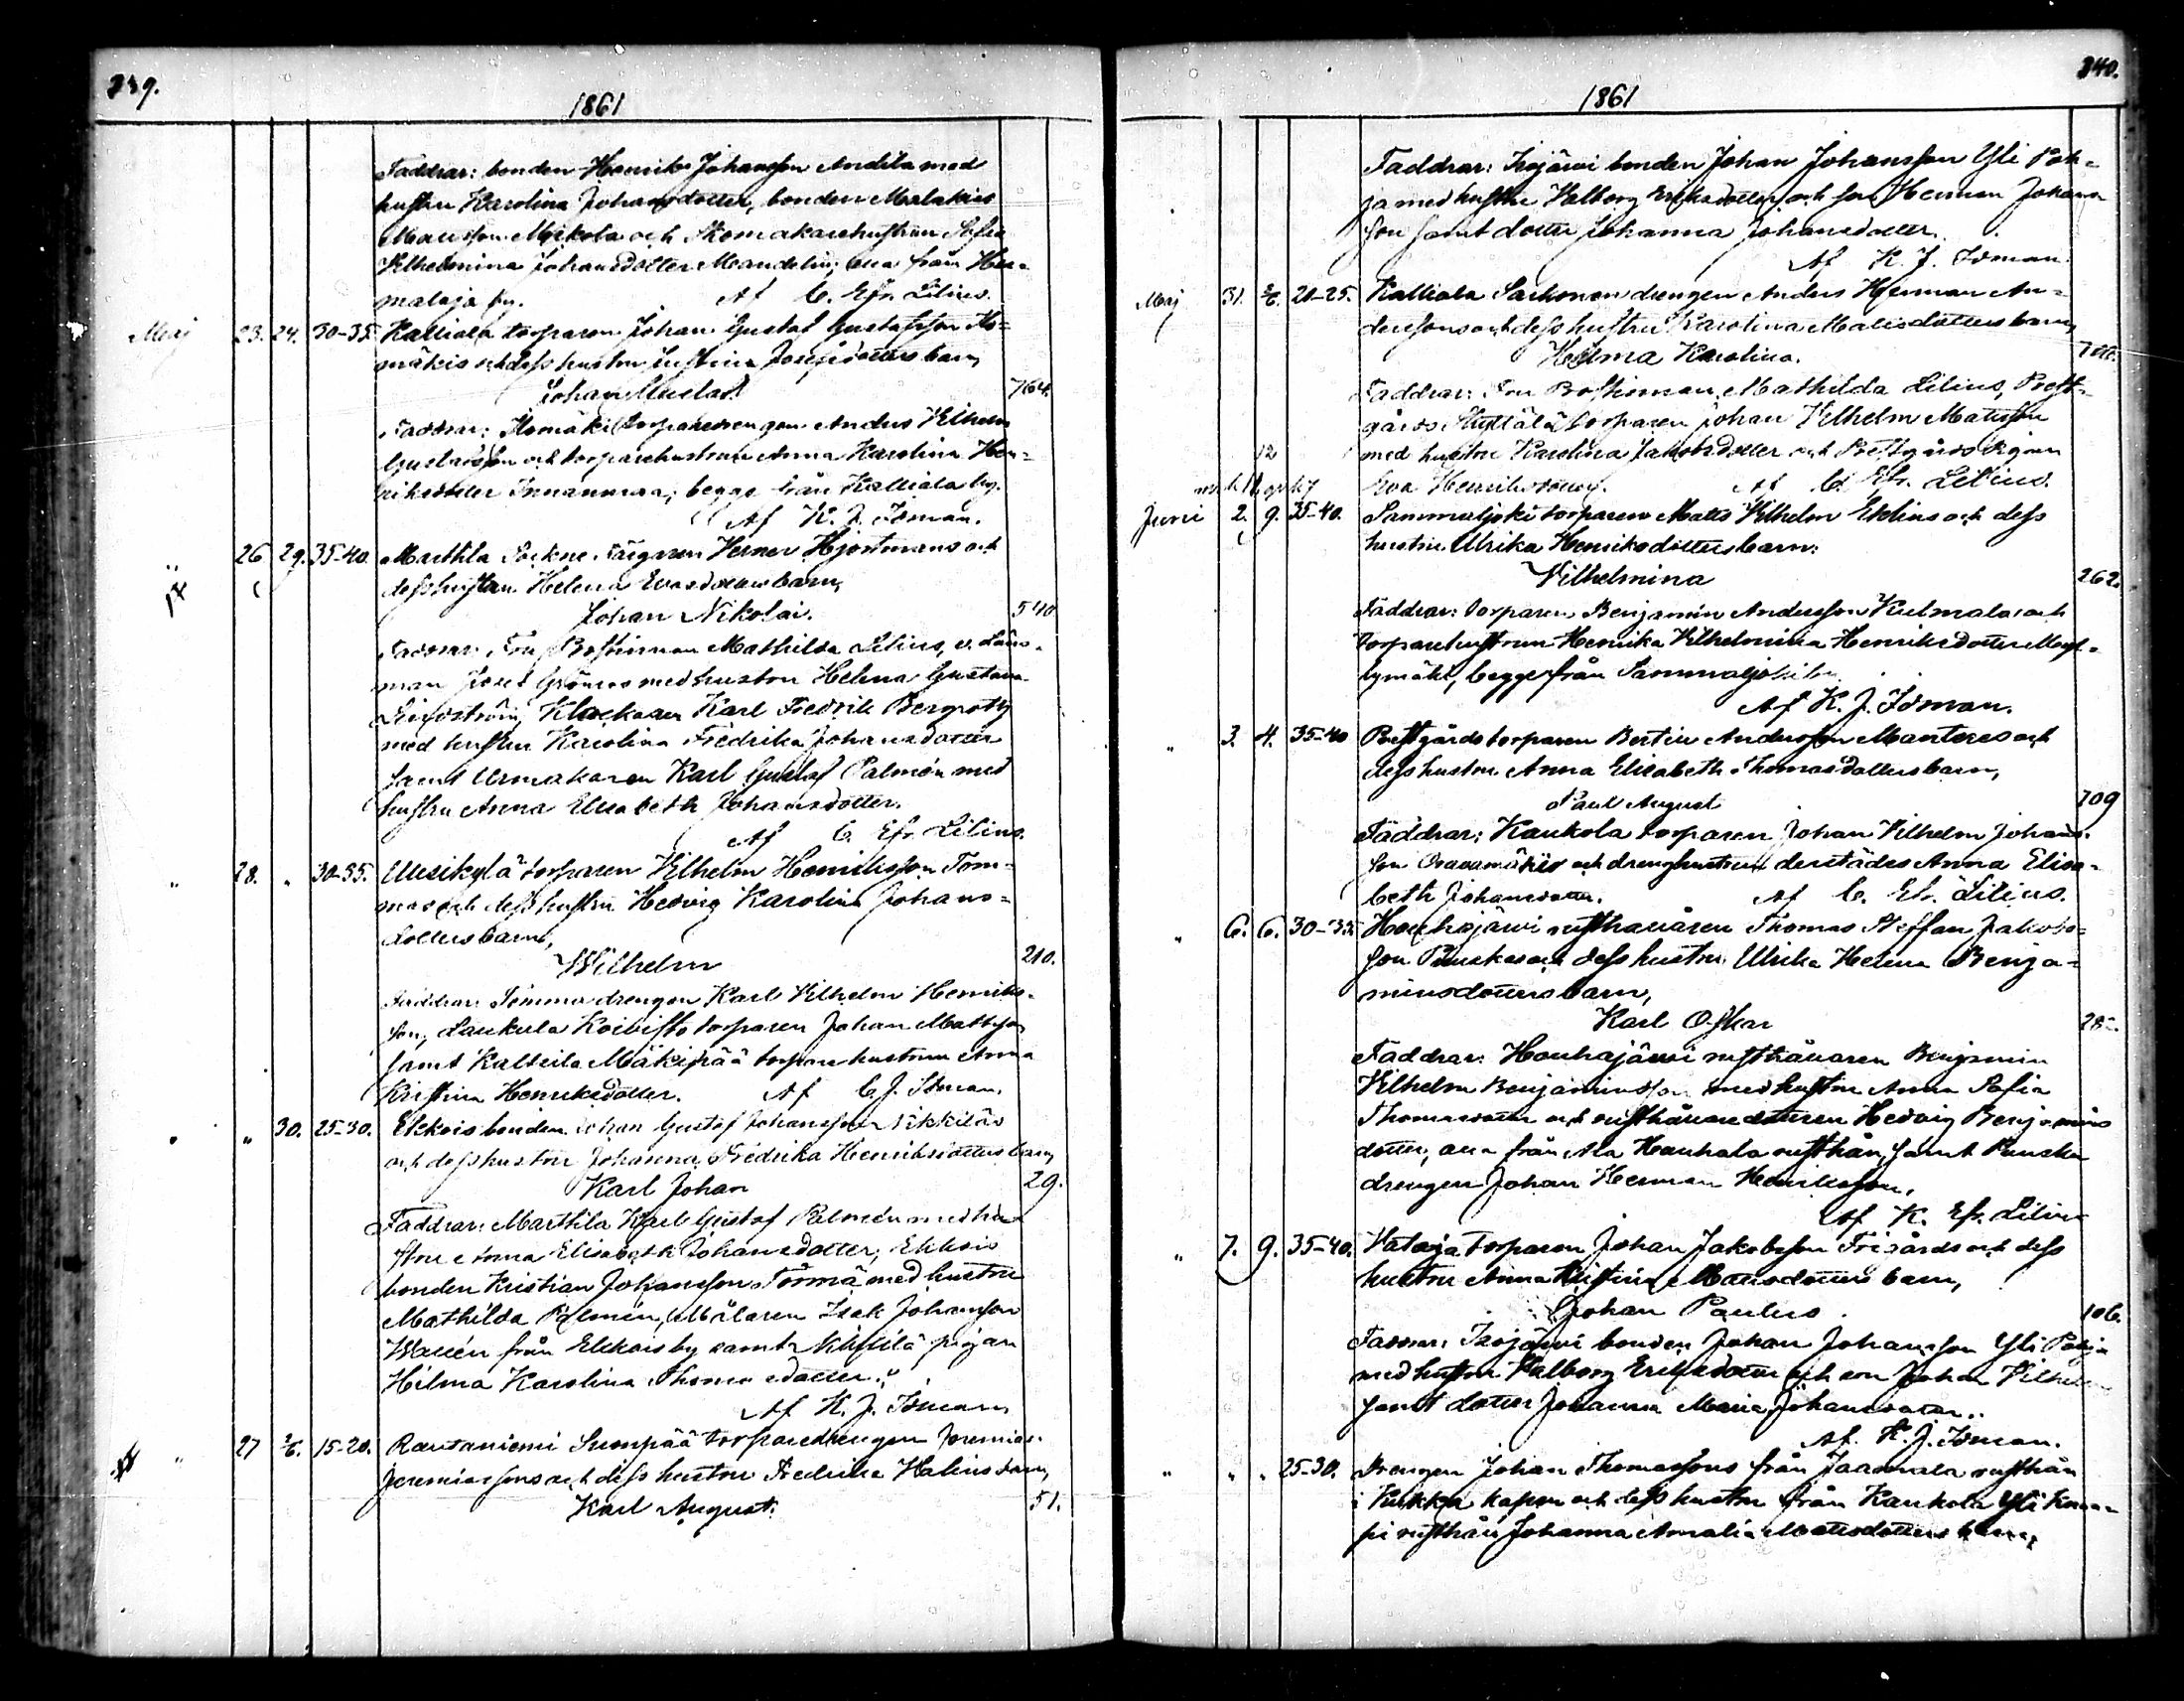 339.
1861
Faddrar: bonden Henrik Johansson Anttila med
hustru Karolina Johansdotter, bonden Malakias
Mattsson Mikola och Skomakarehustrun Sofia
Vilhelmina Johansdotter Mandelin; alla från
malaja by. Af C. Efr. Lilius.
Maj 23. 24. 30-35. Kalliala torparen Johan Gustaf Gustafsson
mäkis och dess hustru Justina Josefsdotters barn,
Johan Gustaf 764.
Faddrar: torparedrengen Anders Vilhelm
Gustafsson och torparehustrun Anna Karolina Hen-
riksdotter Innanmaa; begge från Kalliala by.
Af K. J. Idman.
" 26 29. 35-40. Marttila Sockne Färgaren Herner Hjortmans och
dess hustru Helena Evasdotters barn,
Johan Nikolai. 540
Faddrar: Fru Prostinnan Mathilda Lilius, v. Läns-
man med hustru Helena Gustava
Lindström, Klockaren Karl Fredrik Bergroth
med hustru Karolina Fredrika Johansdotter
samt Urmakaren Karl Gustaf Palmén med
hustru Anna Elisabeth Johansdotter.
Af C. Efr. Lilius.
" 28. " 30-35. Uusikylä torparen Vilhelm Henriksson Töm-
mas och dess hustru Hedvig Karolina Johans-
dotters barn,
Wilhelm 210.
Faddrar: Tömma drengen Karl Vilhelm Henriks-
son, Laukula Koivisto torparen Johan Mattsson
samt Kaltsila Mäkipää torparehustrun Anna
Kristina Henriksdotter. Af C. J. Idman.
" " 30. 25-30. Ekkois bonden Johan Gustaf Johansson Nikkiläs
och dess hustru Johanna Fredrika Henriksdotters barn,
Karl Johan 29.
Faddrar: Marttila Karl Gustaf Palmén med hu-
stru Anna Elisabeth Johansdotter, Ekkois
bonden Kristian Johansson Törmä med hustru
Mathilda Palmén, Målaren Isak Johansson
från Ekkois by samt Nikkilä pigan
Hilma Karolina Thomasdotter.
Af K. J. Idman
" 27 2/6. 15-20. Rautaniemi Suonpää torparedrengen Jeremias
Jeremiassons och dess hustru Fredrika Halins barn,
Karl August. 51.
340.
1861
Faddrar: Isojärvi bonden Johan Johansson Yli Poh-
ja med hustru Valborg Eriksdotter och son Herman Johans-
son samt dotter Johanna Johansdotter.
Af K. J. Idman.
Maj 31. 2/6. 20-25. Kalliala Sarkonen drengen Anders Herman An-
derssons och dess hustru Karolina Matsdotters barn,
Hilma Karolina.
Faddrar: Fru Prostinnan Mathilda Lilius, Prest-
gårds torparen Johan Vilhelm Matsson
med hustru Karolina Jakobsdotter och Prestgårds pigan
Eva Henriksdotter. Af C. Efr. Lilius.
Juni 2. 9. 35-40. Sammaljoki torparen Matts Vilhelm Eklins och dess
hustru Ulrika Henriksdotters barn:
Vilhelmina 262.
Faddrar: torparen Benjamin Andersson Kulmala och
torparehustrun Henrika Vilhelmina Henriksdotter
mäki, begge från Sammaljoki by.
Af K. J. Idman.
" 3. 4. 35-40 Prestgårds torparen Bertin Andersson Manteres och
dess hustru Anna Elisabeth Thomasdotters barn,
Paul August 709
Faddrar: Kaukola torparen Johan Vilhelm Johans-
son Oravamäkis och drenghustrun derstädes Anna Elisa-
beth Johansdotter. Af C. Efr. Lilius.
" 6. 6. 30-35. Houhajärvi rusthållaren Thomas Steffan Jakobs-
son Punskas och dess hustru Ulrika Helena Benja-
minsdotters barn,
Karl Oskar
Faddrar: Houhajärvi rusthållaren Benjamin
Vilhelm Benjaminsson med hustru Anna Sofia
Thomasdotter och rusthållaredottren Hedvig Benjamins-
dotter, alla från Ala Houhala rusthåll, samt Punska
drengen Johan Herman Henriksson.
Af K. Efr. Lilius
" 7. 9. 35-40. Vataja torparen Johan Jakobsson Frigårds och dess
hustru Anna Kristina Mattsdotters barn,
Johan Paulus 106.
Faddrar: Isojärvi bonden Johan Johansson Yli Pohja
med hustru Valborg Eriksdotter och son Johan Vilhelm
samt dotter Johanna Maria Johansdotter.
Af. K. J. Idman.
" " " 25-30. Drengen Johan Thomassons från Jaamala rusthåll
i Kiikka kapell och dess hustru från Kaukola Yli
pi rusthåll Johanna Amalia Mattsdotters barn,